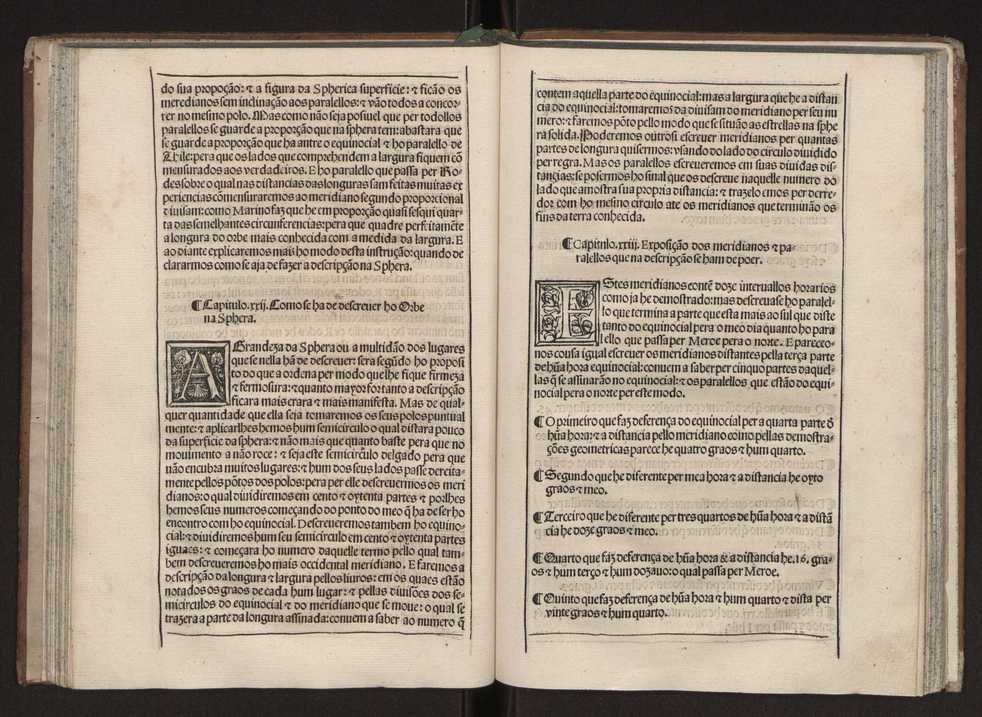 do sua propoção: ⁊ a figura da Spherica superficie: ⁊ ficão os
meredianos sem inclinação aos parallelos: ⁊ vão todos a concor-
rer no mesmo polo. Mas como não seja posiuel que per todollos
parallelos se guarde a proporção que na sphera tem: abastara que
se guarde a proporção que ha antre o equinocial ⁊ ho parallelo de
Thile: pera que os lados que comprehendem a largura fiquem cõ
mensurados aos verdadeiros. E ho parallelo que passa per Ro-
des sobre o qual nas distancias das longuras sam feitas muitas ex
periencias cõmensuraremos ao meridiano segundo proporcional
diuisam: como Marino faz que he em proporção quasi sesqui quar-
ta das semelhantes circunferencias: pera que quadre perfeitamẽte
a longura do orbe mais conhecida com a medida da largura. E
ao diante explicaremos mais ho modo desta instrução: quando de
clararmos como se aja de fazer a descripção na Sphera.
¶ Capitulo .xxij. Como se ha de descreuer ho Orbe
na Sphera.
A Grandeza da Sphera ou a multidão dos lugares
que se nella hã de descreuer: sera segũdo ho proposi
to do que a ordena per modo que lhe fique firmeza
⁊ fermosura: ⁊ quanto mayor for tanto a descripção
ficara mais crara ⁊ mais manifesta. Mas de qual-
quer quantidade que ella seja tomaremos os seus polos puntual
mente: ⁊ aplicarlhes hemos hum semicirculo o qual distara pouco
da superficie da sphera: ⁊ não mais que quanto baste pera que no
mouimento a não roce: ⁊ seja este semicirculo delgado pera que
não encubra muitos lugares: ⁊ hum dos seus lados passe dereita-
mente pellos põtos dos polos: pera per elle descreuermos os meri
dianos: o qual diuidiremos em cento ⁊ oytenta partes ⁊ porlhes
hemos seus numeros começando do ponto do meo q̃ ha de ser ho
encontro com ho equinocial. Descreueremos tambem ho equino-
cial: ⁊ diuidiremos hum seu semicirculo em cento ⁊ oytenta partes
iguaes: ⁊ começara ho numero daquelle termo pello qual tam-
bem descreueremos ho mais occidental meridiano. E faremos a
descripção da longura ⁊ largura pellos liuros: em os quaes estão
notados os graos de cada hum lugar: ⁊ pellas diuisões dos se-
micirculos do equinocial ⁊ do meridiano que se moue: o qual se
trazera a parte da longura assinada: conuem a saber ao numero q̃
contem aquella parte do equinocial: mas a largura que he a distan
cia do equinocial: tomaremos da diuisam do meridiano per seu nu
mero: ⁊ faremos põto pello modo que se situão as estrellas na sphe
ra solida. Poderemos outrosi escreuer meridianos per quantas
partes de longura quisermos: vsando do lado do circulo diuidido
per regra. Mas os parallelos escreueremos em suas diuidas dis-
tancias: se posermos ho sinal que os descreue naquelle numero do
lado que amostra sua propria distancia: ⁊ trazelo emos per derre-
dor com ho mesmo circulo ate os meridianos que terminão os
fins da terra conhecida.
¶ Capitulo .xxiij. Exposição dos meridianos ⁊ pa-
ralellos que na descripção se ham de poer.
EStes meridianos contẽ doze interuallos horarios
como ja he demostrado: mas descreuase ho paralel-
lo que termina a parte que esta mais ao sul que diste
tanto do equinocial pera o meo dia quanto ho para
lello que passa per Meroe pera o norte. E pareceo-
nos cousa igual escreuer os meridianos distantes pella terça parte
de hũa hora equinocial: conuem a saber per cinquo partes daquel-
las q̃ se assinarão no equinocial: ⁊ os parallelos que estão do equi-
nocial pera o norte per este modo.
¶ O primeiro que faz deferença do equinocial per a quarta parte d̃
hũa hora: ⁊ a distancia pello meridiano como pellas demostra-
ções geometricas parece he quatro graos ⁊ hum quarto.
¶ Segundo que he diferente per mea hora ⁊ a distancia he oyto
graos ⁊ meo.
¶ Terceiro que he diferente per tres quartos de hũa hora ⁊ a distã
cia he doze graos ⁊ meo.
¶ Quarto que faz deferença de hũa hora & a distancia he .16. gra-
os ⁊ hum terço ⁊ hum dozauo: o qual passa per Meroe.
¶ Quinto que faz deferença de hũa hora ⁊ hum quarto ⁊ dista per
vinte graos ⁊ hum quarto.